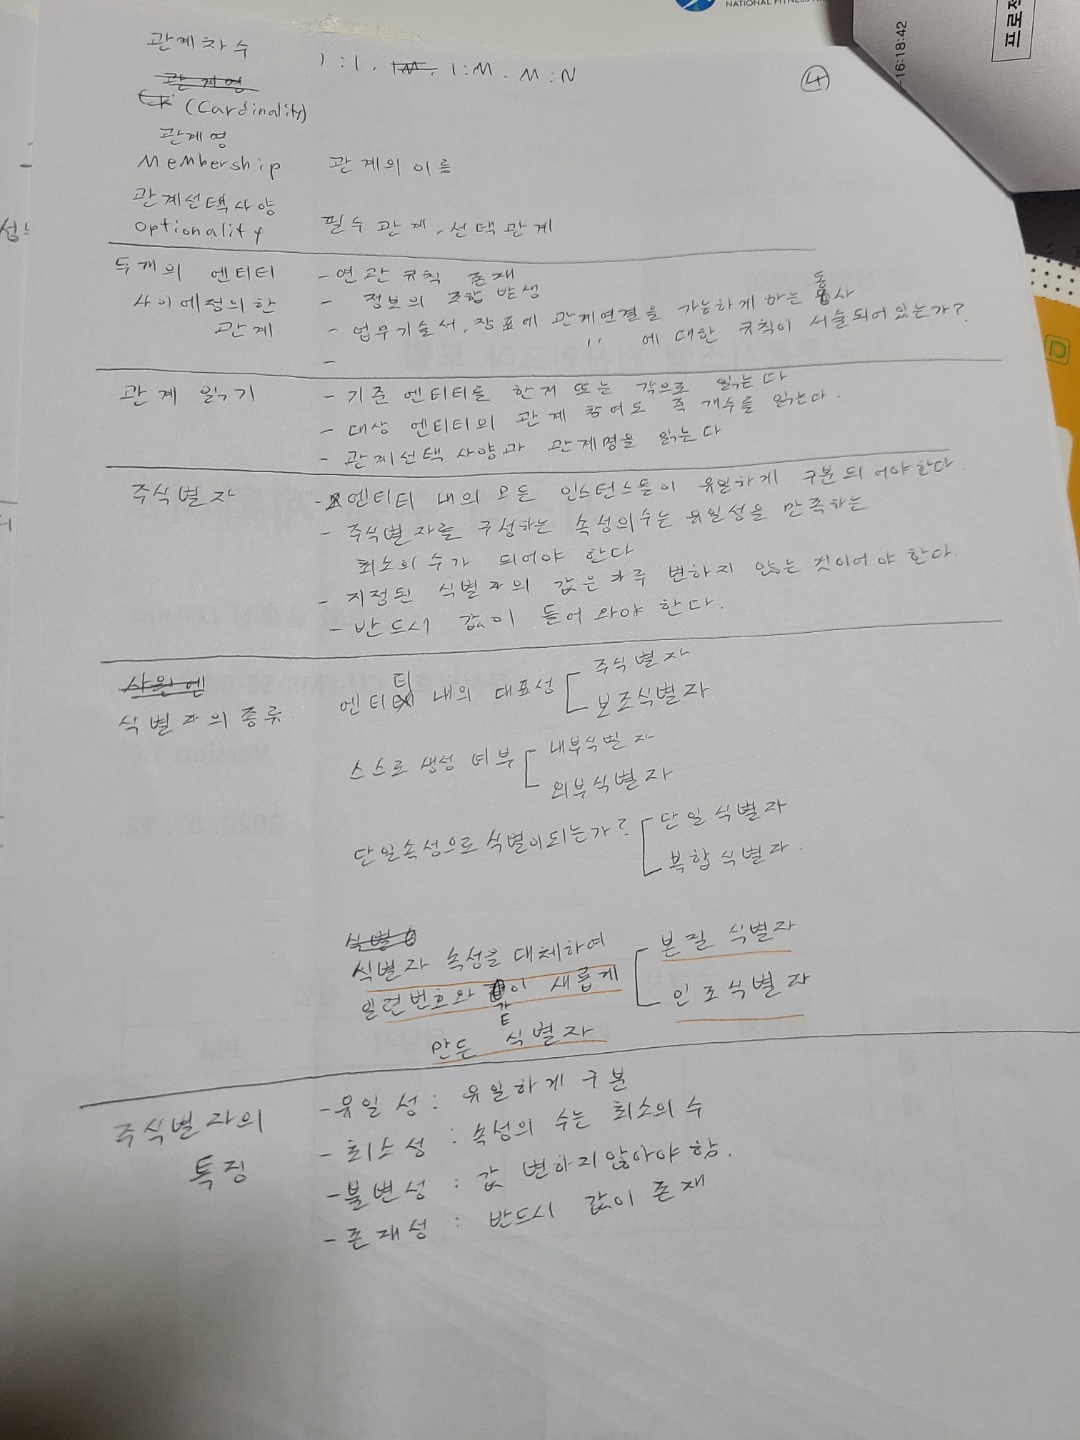 NATIONAL FITNESS
-16:18:42
프로
④
관계차수 1:1, 1:M, M:N
(Cardinality)
관계명
Membership 관계의 이름
관계선택사양
Optionality 필수관계, 선택관계
두개의 엔티티 - 연관규칙 존재
사이에정의한 - 정보의 조합 발생
관계 - 업무기술서, 장표에 관계연결을 가능하게 하는 동사
〃 에 대한 규칙이 서술되어있는가?
-
관계 읽기 - 기준 엔티티를 한개 또는 각으로 읽는다
- 대상 엔티티의 관계 참여도 즉 개수를 읽는다.
- 관계선택 사양과 관계명을 읽는다
주식별자 - 엔티티 내의 모든 인스턴스들이 유일하게 구분되어야한다.
- 주식별자를 구성하는 속성의수는 유일성을 만족하는
최소의 수가 되어야 한다
- 지정된 식별자의 값은 자주 변하지 않는 것이어야 한다.
- 반드시 값이 들어와야 한다.
식별자의종류
엔티티 내의 대표성 주식별자
보조식별자
스스로 생성 여부 내부식별자
외부식별자
단일속성으로 식별이되는가? 단일식별자
복합식별자.
식별자 속성을 대체하여 본질 식별자
일련번호와 같이 새롭게 인조식별자
만든 식별자
주식별자의 - 유일성 : 유일하게 구분
특징 - 최소성 : 속성의 수는 최소의 수
- 불변성 : 값 변하지않아야 함.
- 존재성 : 반드시 값이 존재